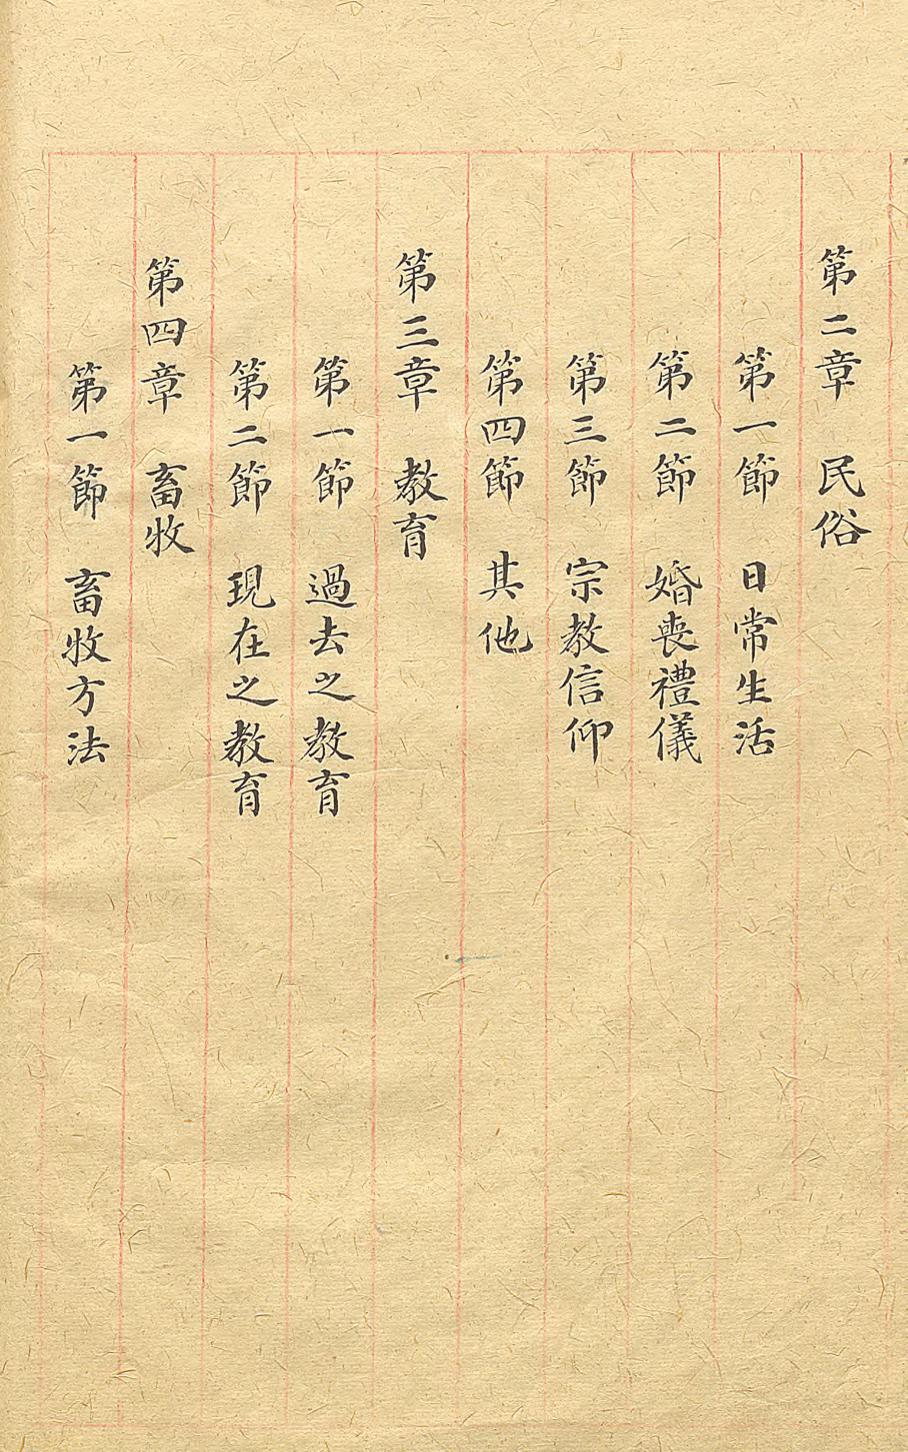 第二章　民俗
第一節　日常生活
第二節　婚喪禮儀
第三節　宗教信仰
第四節　其他
第三章　教育
第一節　過去之教育
第二節　現在之教育
第四章　畜牧
第一節　畜牧方法